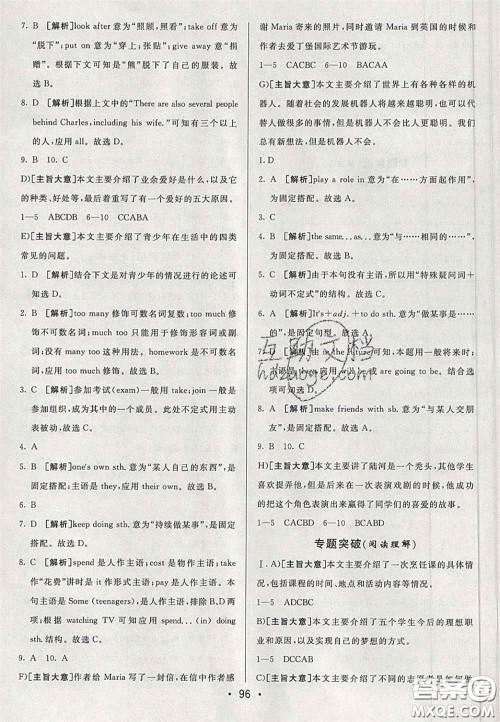 7. B [解析]look after 意为“照顾,照看”;take off 意为
“脱下”;put on 意为“穿上;张贴”;give away 意为“捐
赠”。根据下文可知是“熊”脱下了自己的服装。故
选 B。
8. D [解析]根据上文中的“There are also several people
behind Charles,including his wife.”可知有三个以上
的人,应用 all。故选 D。
9. B 10. C
D)[主旨大意]本文主要介绍了业余爱好是什么,以及
它的种类、好处等,最后重点写了有一个爱好的五大原因。
1—5 ABCDB 6—10 CCABA
E)[主旨大意]本文主要介绍了青少年在生活中的四类
常见的问题。
1. D [解析]结合下文是对青少年的情况进行的论述可
知选 D。
2. B [解析]too many 修饰可数名词复数;too much 修
饰不可数名词;much too 只能用于修饰形容词或副
词;没有 more too 这种用法,homework 是不可数名
词。故选 B。
3. C [解析]参加考试(exam)一般用 take;join 一般用
作成为其中的一个成员。此处不定式用主动
表被动,故选 C。
4. A
5. B [解析]one's own sth.意为“某人自己的东西”,是
固定搭配;主语是 they,应用 their。故选 B。
6. D [解析]keep doing sth.意为“持续做某事”,是固定
搭配。故选 D。
8. D [解析]spend 是人作主语;cost 是物作主语;take
作“花费”讲时以 it 作形式主语;pay 是人作主语。本
句主语为 Some (teenagers),是人作主语,排除 B、D 两
项;根据 watching TV 可知应用 spend ... (in) doing
sth.的结构。故选 A。
9. A 10. A
F)[主旨大意]作者给 Maria 写了一封信,在信中作者感
谢 Maria 寄来的照片,同时邀请 Maria 到英国的时候和
作者去爱丁堡国际艺术节游玩。
1—5 CACBC 6—10 CABCA
G)[主旨大意]本文主要介绍了世界上有各种各样的机
器人。随着社会的发展机器人将越来越聪明,也许有一
天,机器人将变得像人类一样聪明,甚至超过人类。我们
总有新想法,但是机器人却没有。
1. D
2. A [解析]play a role in 意为“在……方面起作用”,
为固定搭配。故选 A。
3. C
4. A [解析]the same...as...意为“与……相同的……”,
为固定搭配。故选 A。
5. C [解析]由于本句没有主语,所以用“特殊疑问词+
动词不定式”的结构。故选 C。
6. A [解析]It's+adj. + to do sth.意为“做某事是
……的”,是固定句型。故选 A。
7. D [解析]由 in the future 可知,本题用一般将来时;
主语是复数,应用 will 或 are going to be。故选 D。
8. A [解析]make friends with sb. 意为“与某人交朋
友”,是固定搭配。故选 A。
9. B 10. C
H)[主旨大意]本文主要讲了陆河是一个秃头,其他学
生喜欢捉弄他,但是他在一次表演戏剧的时候,以他成功
地把这个角色表演出来赢得了同学们的喜爱的故事。
1—5 CACBD 6—10 CACBD
专题突破(阅读理解)
Ⅰ. A)[主旨大意]本文主要介绍了一次烹饪课的具体情
况,包括课程的时间、地点和活动内容等情况。
1—5 ADCBC
B)[主旨大意]本文主要介绍了五个学生今后的理想职
业和以后自己实现自己的梦想的方式。
1—5 DCCAB
C)[主旨大意]本文主要介绍了不同的志愿者是如何做
· 96 ·
互助文档
hdzuoye.com
答案圈
MXQE.COM